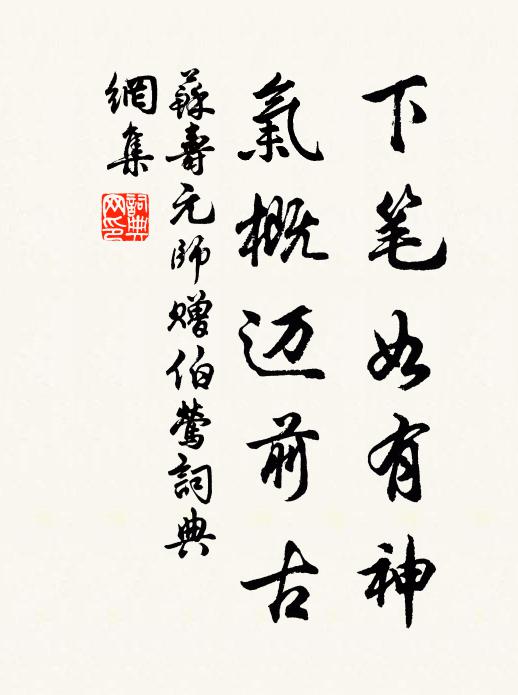 下笔如有神
氣概迈前古
蘇壽元師贈伯鶯詞典
網集
詞典网印